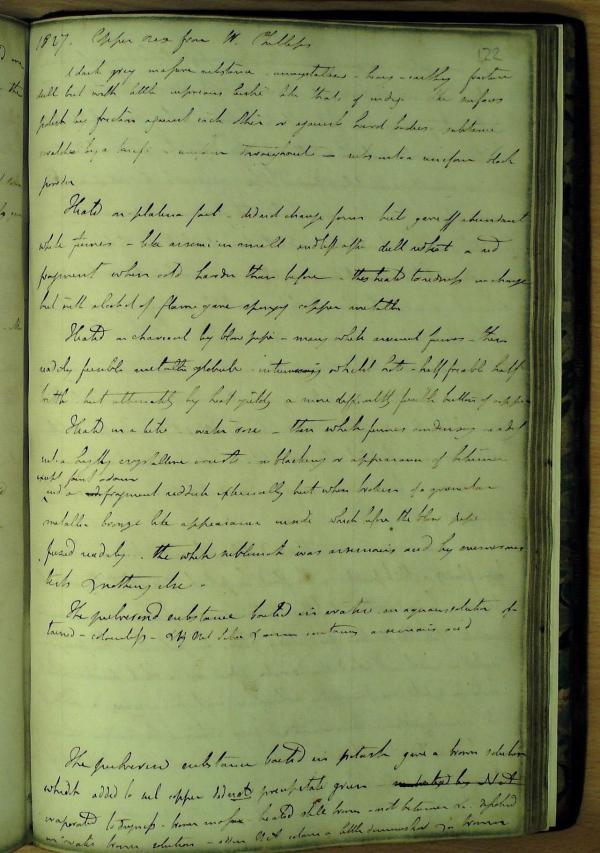 1827. Copper ore from W. Phillips
122
A dark grey massive substance - uncrystallised - heavy - earthy fracture
dull but with little cupreous lustre like that of indigo the surfaces
polish by friction against each other or against hard bodies. substance
scratches by a knife - uniform throughout - rubs into a uniform black
powder
Heated on platina foil - did not change form but gave off abundant
white fumes - like arsenic in smell and left after dull red heat a red
fragment when cold harder than before - this heated to redness no change
but with alcohol flame gave spongy copper metallic
Heated on charcoal by blow pipe - many white arsenical fumes - then
readily fusible metallic globule - whilst hot - half fusible half
brittle but ultimately by heat yields a more difficultly fusible button of copper
Heated in a tube - water rose - then white fumes condensing
into a highly crystalline crust - no blackening or appearance of bitumen
except faint odour
and a fragment reddish externally but when broken of a granular
metallic bronze like appearance inside which before the blow pipe
fused readily. the white sublimate was arsenious acid by numerous
tests & nothing else.
The pulverised substance boiled in water. an aqueous solution
- colourless - & by Nit Silver & ammonia contains arsenious acid
The pulverised substance boiled in potash gave a brown solution
which added to sul copper did not precipitate green
evaporated to dryness - brown mass - heated still brown - not bitumen
in water brown solution - colour a little diminished